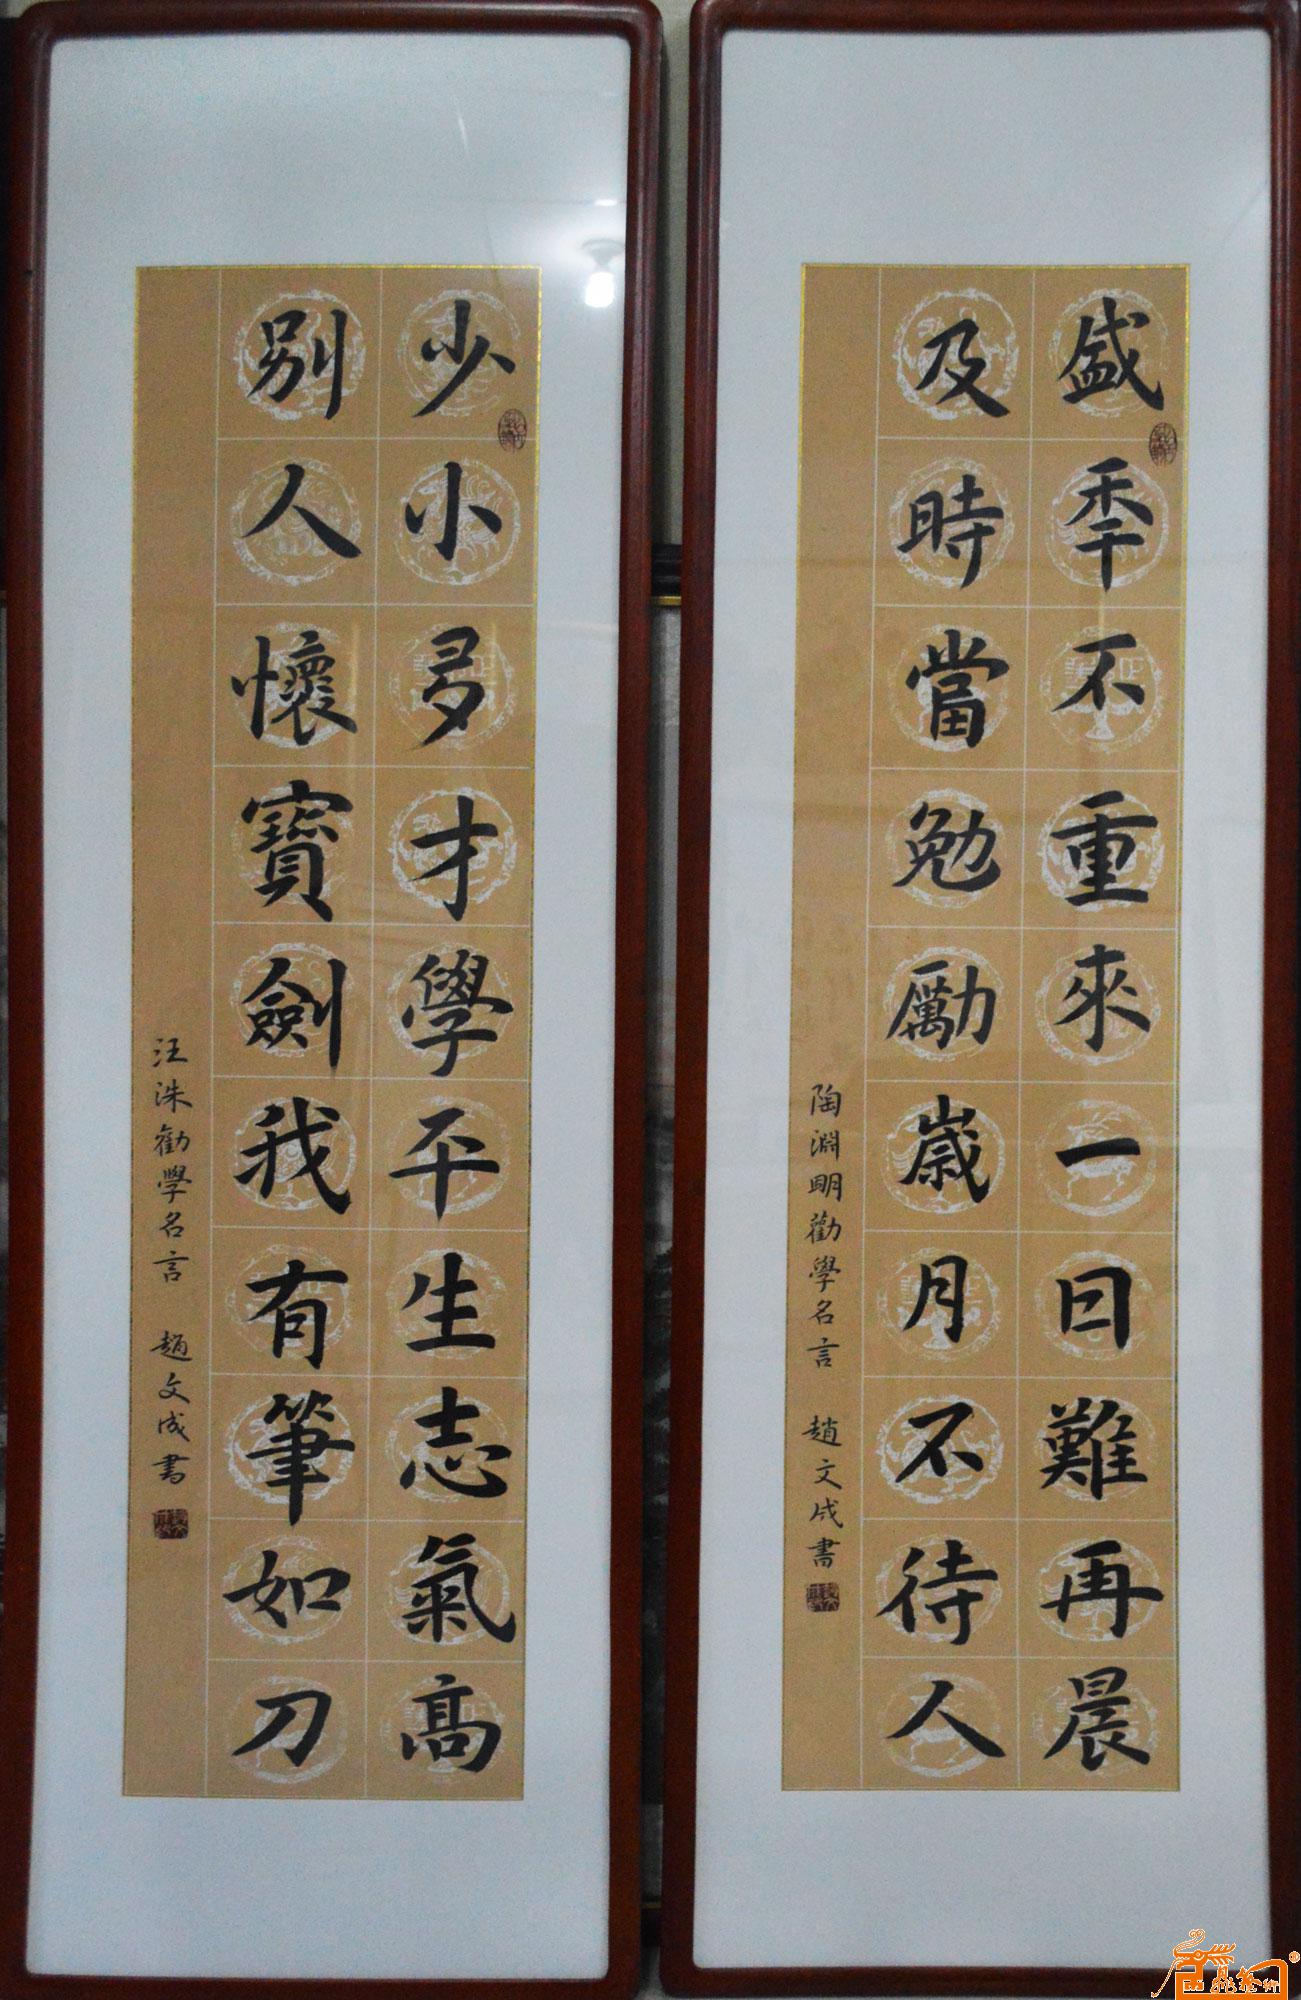 盛季不重來一日難再晨
及時當勉勵歲月不待人
陶淵明勸學名言 趙文成書
少小多才學平生志氣高
別人懷寶劍我有筆如刀
汪洙勸學名言 趙文成書